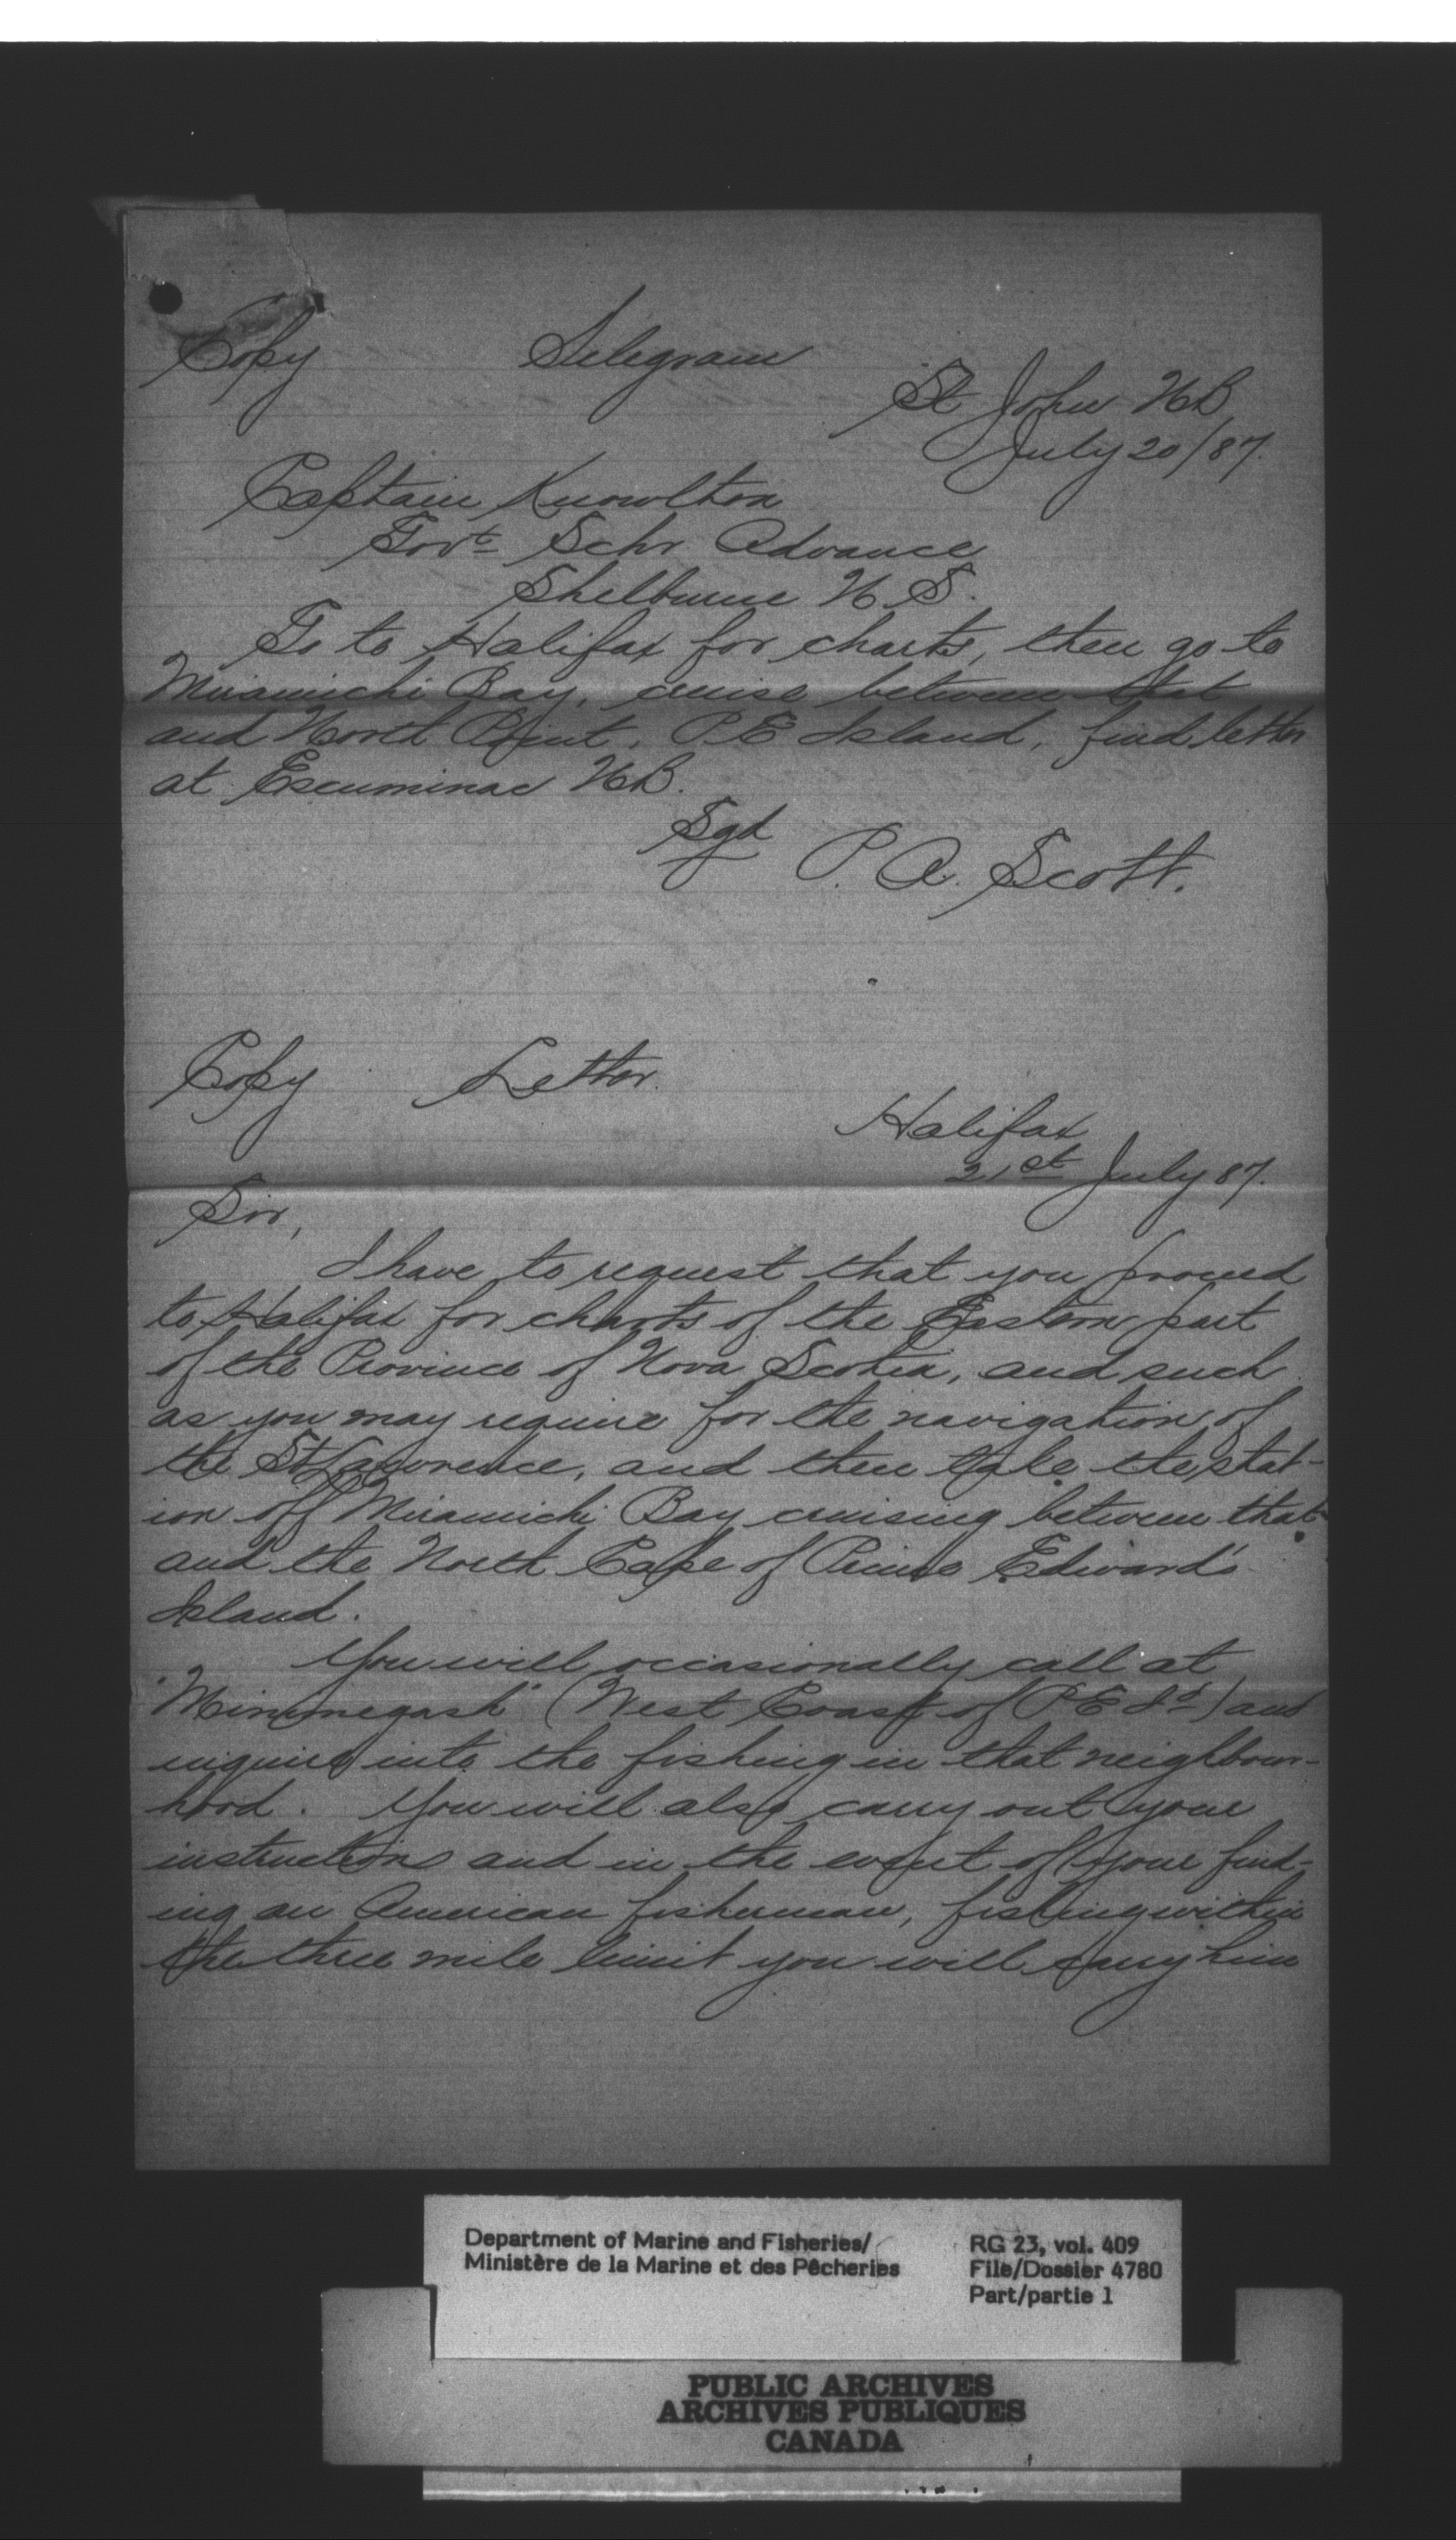 Copy Telegram
St John NB
July 20/87.
Captain Knowlton
Govt Schr Advance
Shelburne N.S.
Go to Halifax for charts, then go to
Miramichi Bay, cruise between that
and North Point, P.E Island, find letter
at Escuminac NB.
Sgd P. A. Scott.
Copy Letter.
Halifax
21st July 87.
Sir,
I have to request that you proceed
to Halifax for charts of the Eastern part
of the Province of Nova Scotia, and such
as you may require for the navigation of
the St Lawrence, and then take the stat-
ion off Miramichi Bay cruising between that
and the North Cape of Prince Edward's
Island.
You will occasionally call at
"Miminegash" (West Coast of P.E Id) and
inquire into the fishing in that neighbour-
hood. You will also carry out your
instructions and in the event of your find-
ing an American fisherman, fishing within
the three mile limit you will carry him
Department of Marine and Fisheries/
Ministère de la Marine et des Pêcheries
RG 23, vol. 409
File/Dossier 4780
Part/partie 1
PUBLIC ARCHIVES
ARCHIVES PUBLIQUES
CANADA